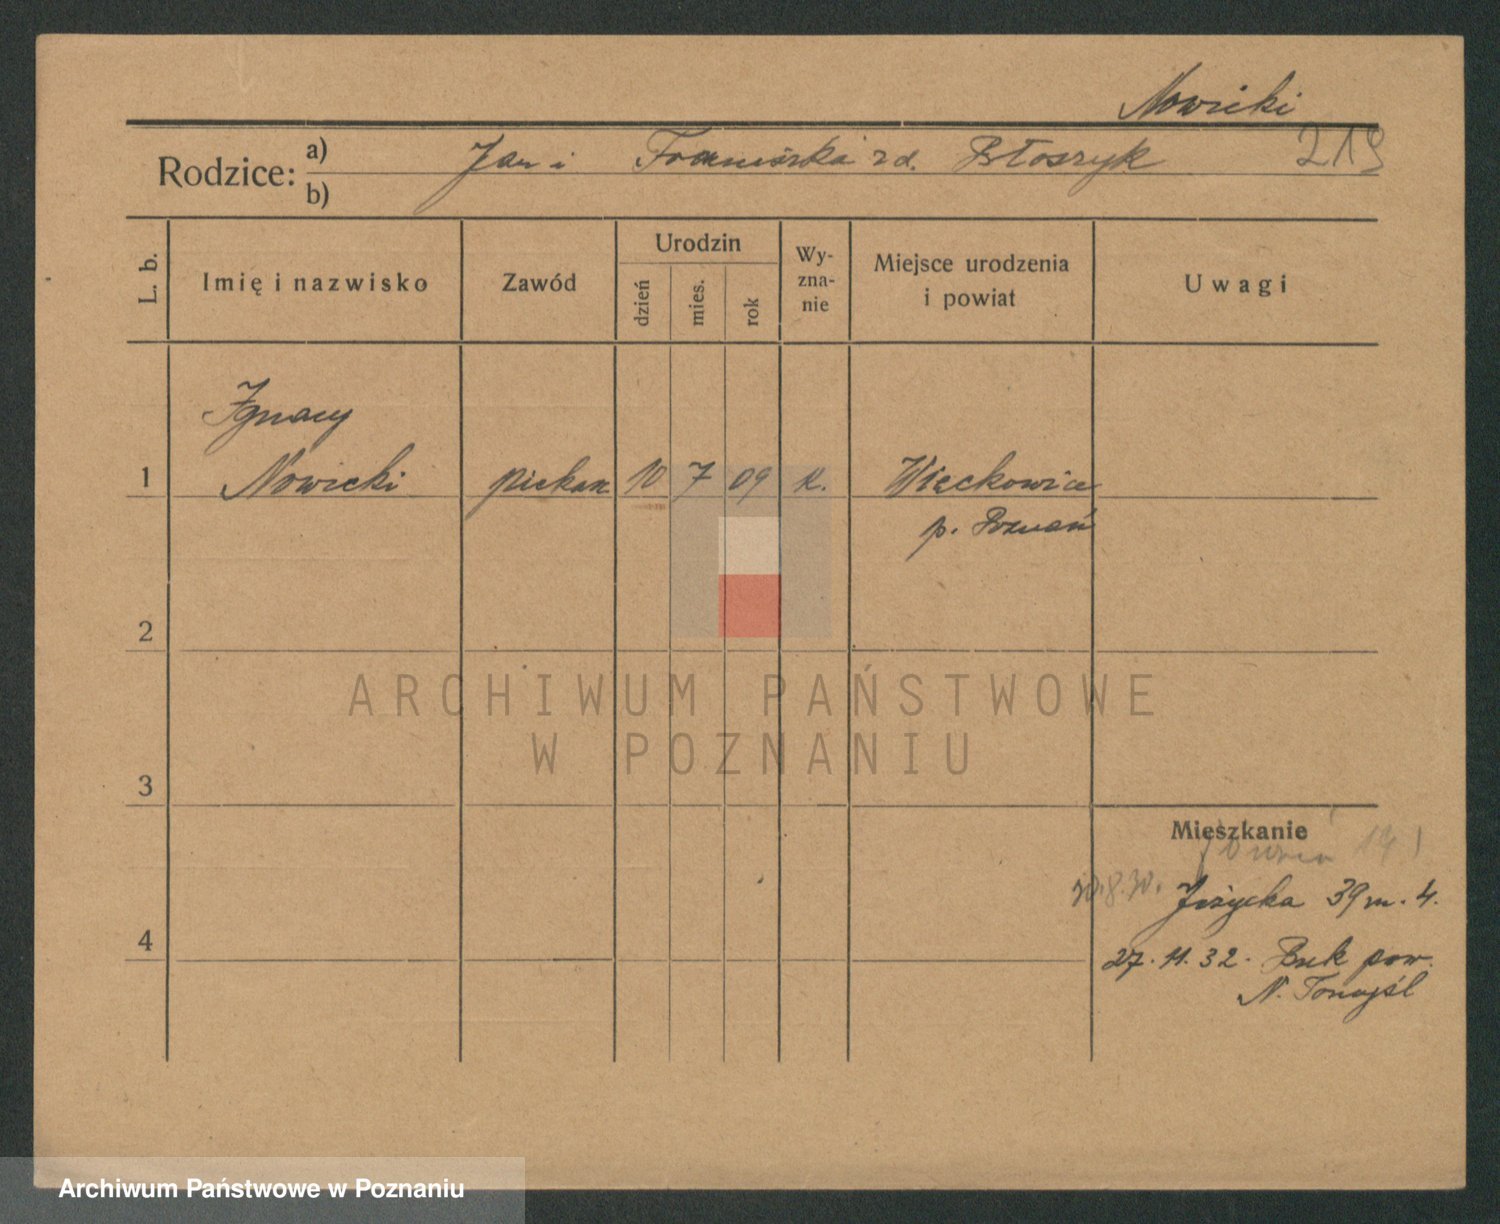 Nowicki
Rodzice: a) b) Jan i Franciszka zd. Błoszyk 219
L. b. Imię i nazwisko Zawód Urodzin dzień mies. rok Wy-zna-nie Miejsce urodzenia i powiat Uwagi
Ignacy
1 Nowicki piekarz 10 7 09 k. Więckowice
p. Poznań
2
ARCHIWUM PAŃSTWOWE
W POZNANIU
3
Mieszkanie
30.8.30. Jeżycka 39 m. 4.
4
27.11.32. Buk pow.
N. Tomyśl
Archiwum Państwowe w Poznaniu